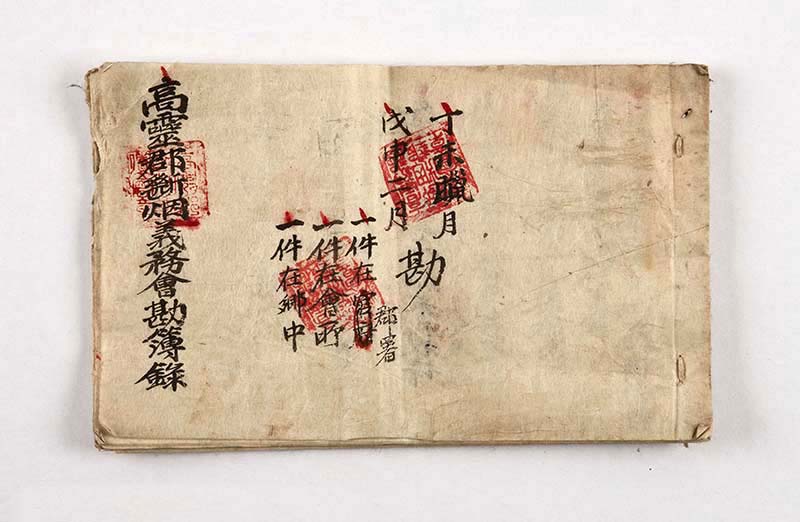 丁未臘月
戊申二月
勘
一件在
郡署
一件在會所
一件在鄕中
高靈郡斷烟義務會勘簿錄